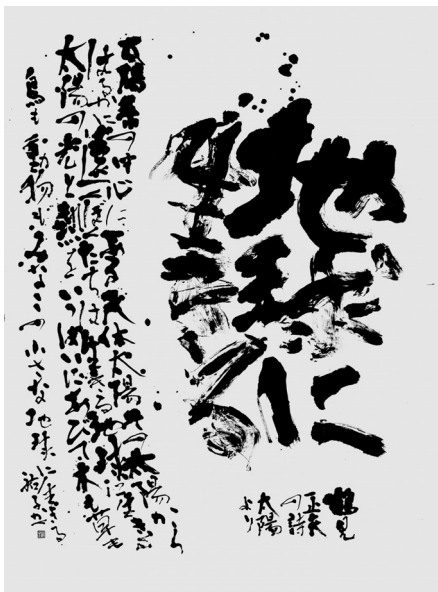 地球に
生きる
鶴見
正夫
の詩
太陽
より
太陽系の中心にある天体太陽その太陽から
はるかに遠くぼくたちは生きる地球に生きる
太陽の光と熱をいっぱいにあびて木も草も
鳥も動物もみなこの小さな地球に生きる